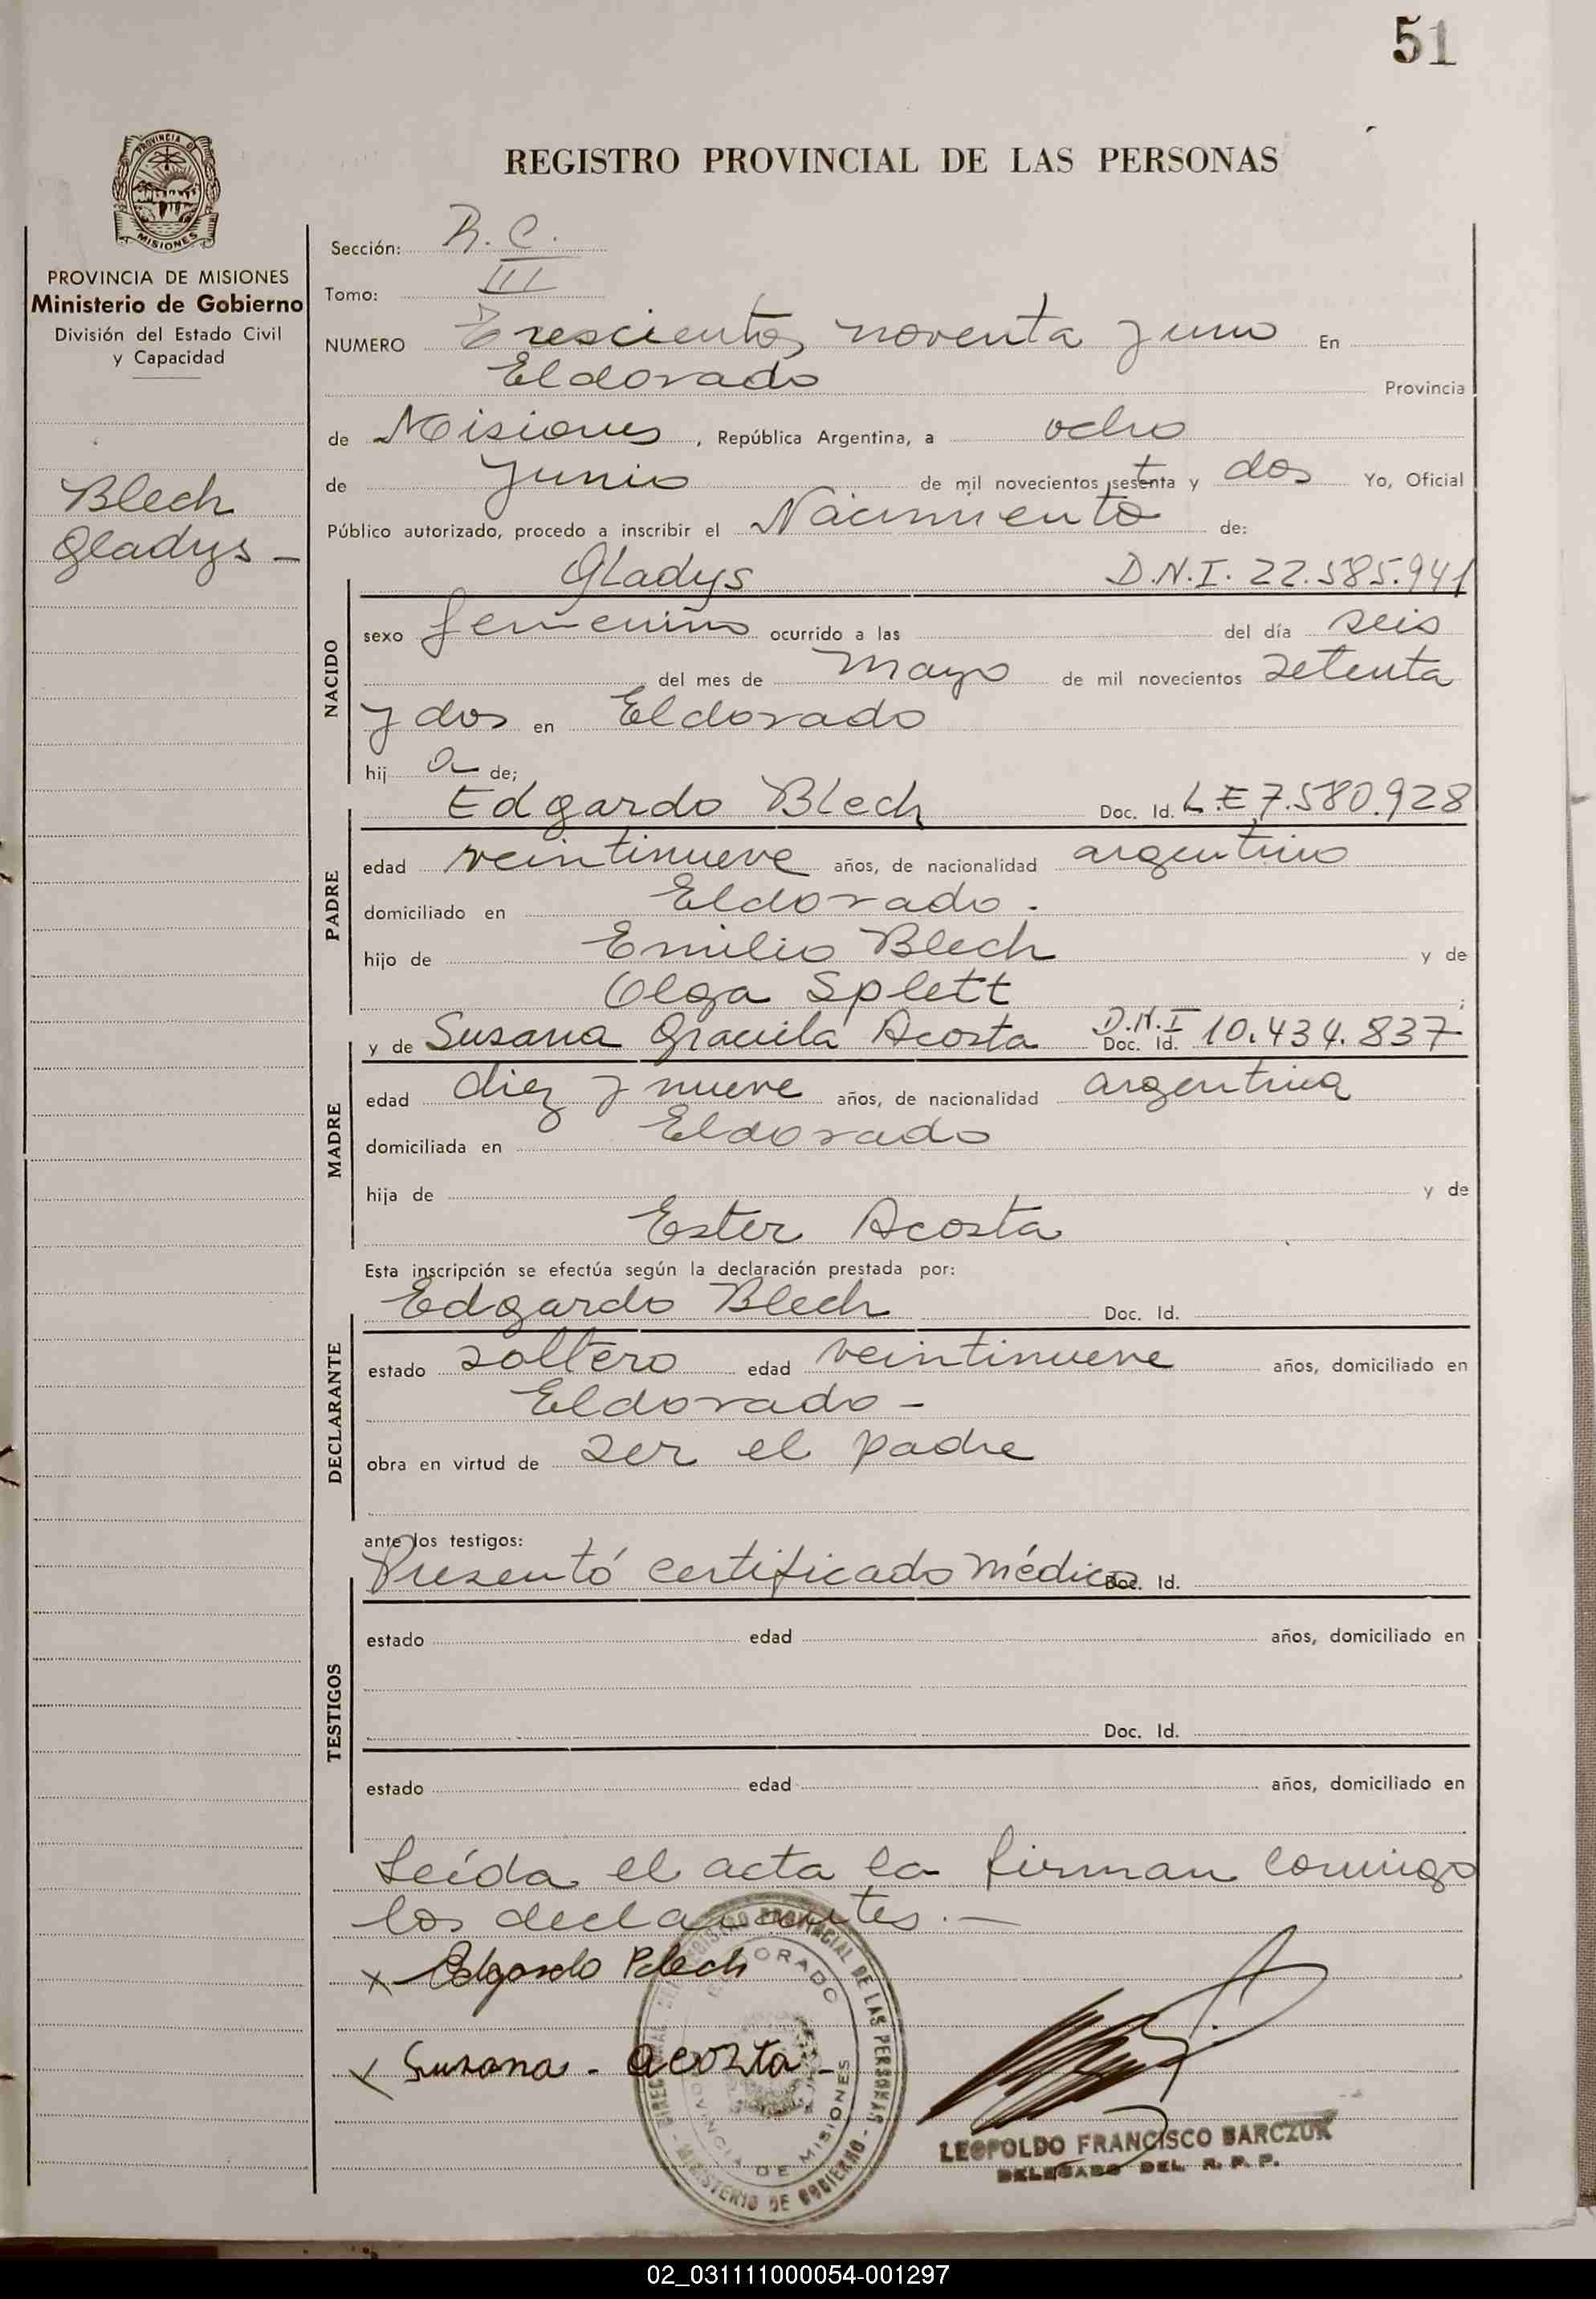 51
REGISTRO PROVINCIAL DE LAS PERSONAS
PROVINCIA DE MISIONES
PROVINCIA DE MISIONES
Ministerio de Gobierno
División del Estado Civil
y Capacidad
Blech
Gladys -
Sección: R. C.
Tomo: III
NUMERO Trescientos noventa y uno En
Eldorado Provincia
de Misiones, República Argentina, a ocho
de Junio de mil novecientos setenta y dos Yo, Oficial
Público autorizado, procedo a inscribir el Nacimiento de:
Gladys D.N.I. 22.585.941
NACIDO
sexo femenino ocurrido a las del día seis
del mes de mayo de mil novecientos setenta
y dos en Eldorado
hij a de;
Edgardo Blech Doc. Id. L.E 7.580.928
PADRE
edad veintinueve años, de nacionalidad argentino
domiciliado en Eldorado.
hijo de Emilio Blech y de
Olga Splett ;
y de Susana Graciela Acosta D.N.I Doc. Id. 10.434.837
MADRE
edad diez y nueve años, de nacionalidad argentina
domiciliada en Eldorado
hija de y de
Ester Acosta
Esta inscripción se efectúa según la declaración prestada por:
Edgardo Blech Doc. Id.
DECLARANTE
estado soltero edad veintinueve años, domiciliado en
Eldorado -
obra en virtud de ser el padre
ante los testigos:
Presentó certificado médico Doc. Id.
TESTIGOS
estado edad años, domiciliado en
Doc. Id.
estado edad años, domiciliado en
Leída el acta la firman conmigo
los declarantes. -
x Edgardo Blech
x Susana - acozta -
REGISTRO PROVINCIAL DE LAS PERSONAS - MINISTERIO DE GOBIERNO -
ELDORADO
PROVINCIA DE MISIONES
LEOPOLDO FRANCISCO BARCZUK
DELEGADO DEL R. P. P.
02_031111000054-001297